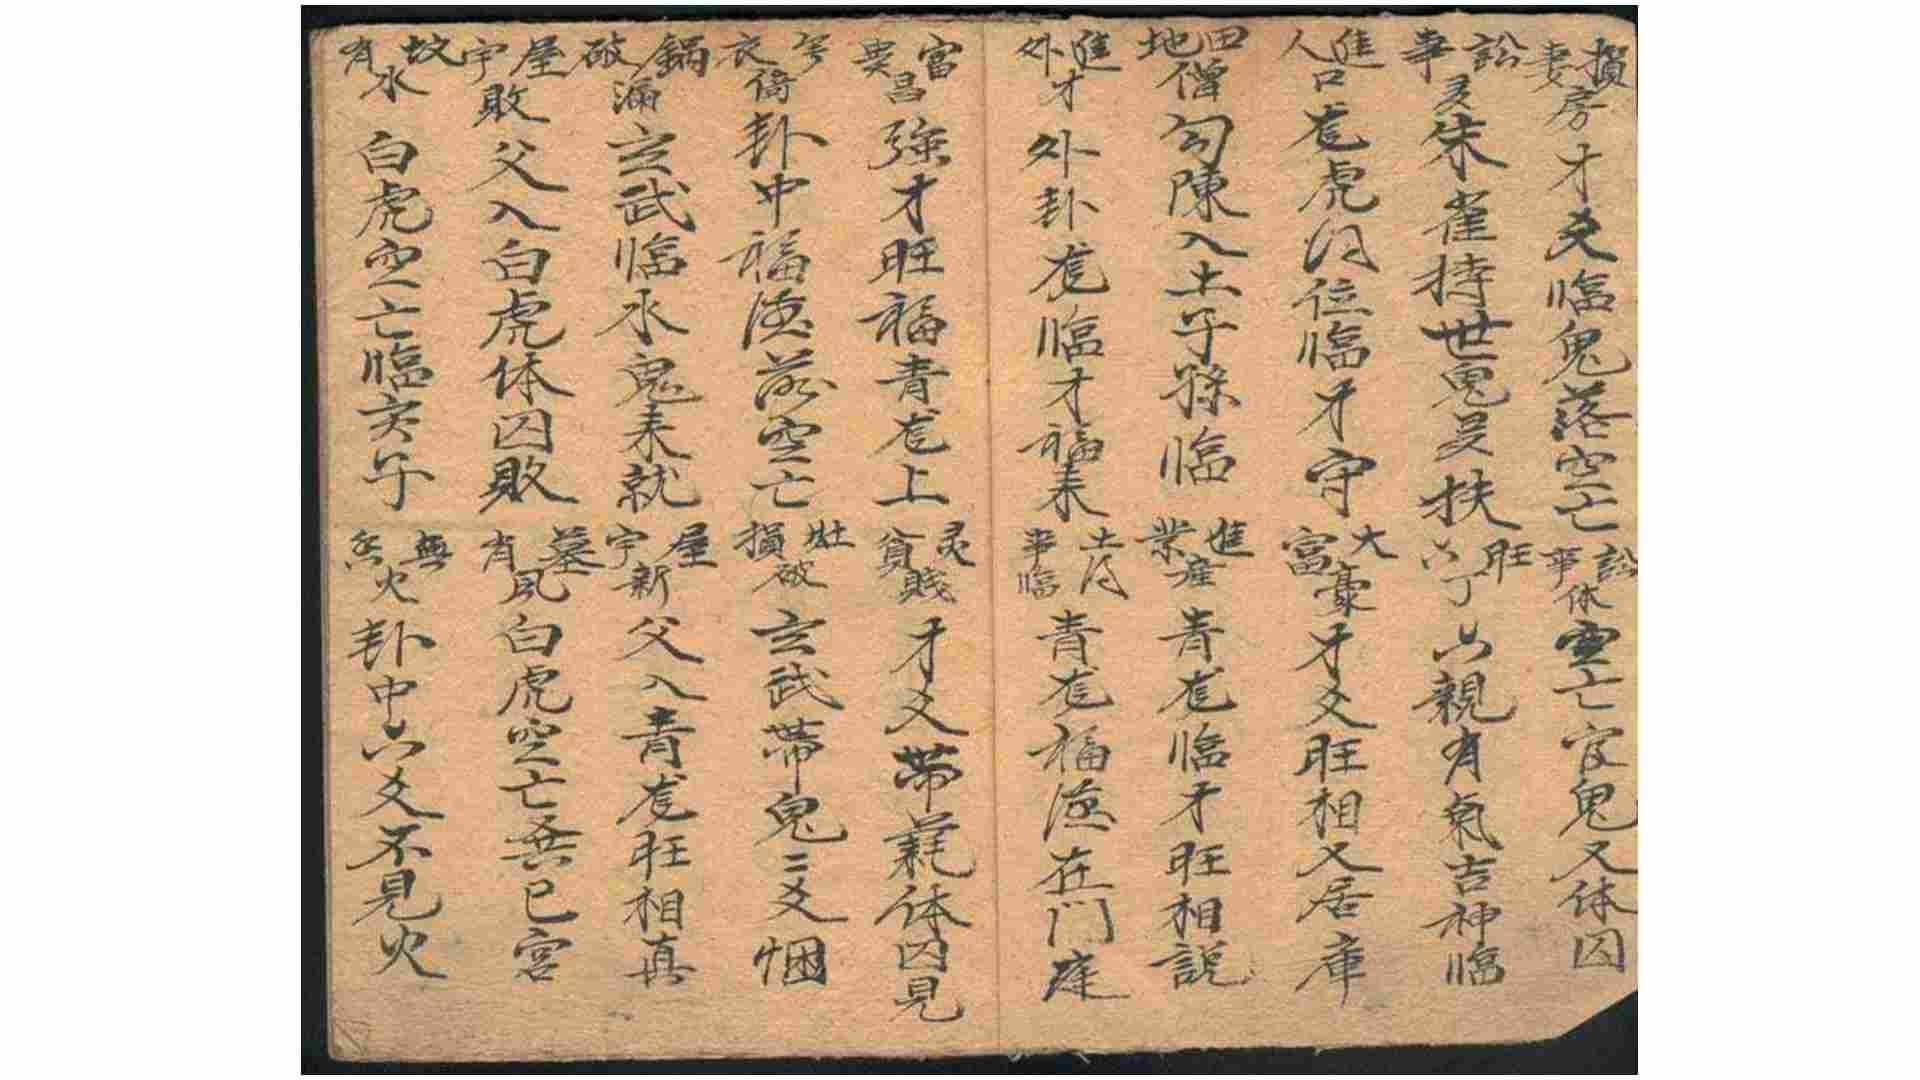 損妻房 才爻臨鬼落空亡 訟事休 空亡官鬼又休囚
訟事 朱雀持世鬼爻扶 旺六丁 六親有氣吉神臨
進人口 尨虎同位臨才守 大富豪 才爻旺相又居庫
田地增 勾陳入土子孫臨 進業産 青尨臨才旺相説
進外才 外卦尨臨才福来 土同事臨 青尨福德在門庭
富貴昌 強才旺福青尨上 灵貧賤 才爻带耗休囚見
衣 卦中福德落空亡 灶損破 玄武带鬼二爻悃
鍋破漏 玄武臨水鬼来就 屋宇新 父入青尨旺相真
屋宇敗 父入白虎休囚敗 墓有風 白虎空亡巽巳宮
坟有水 白虎空亡臨亥子 無火 卦中六爻不見火